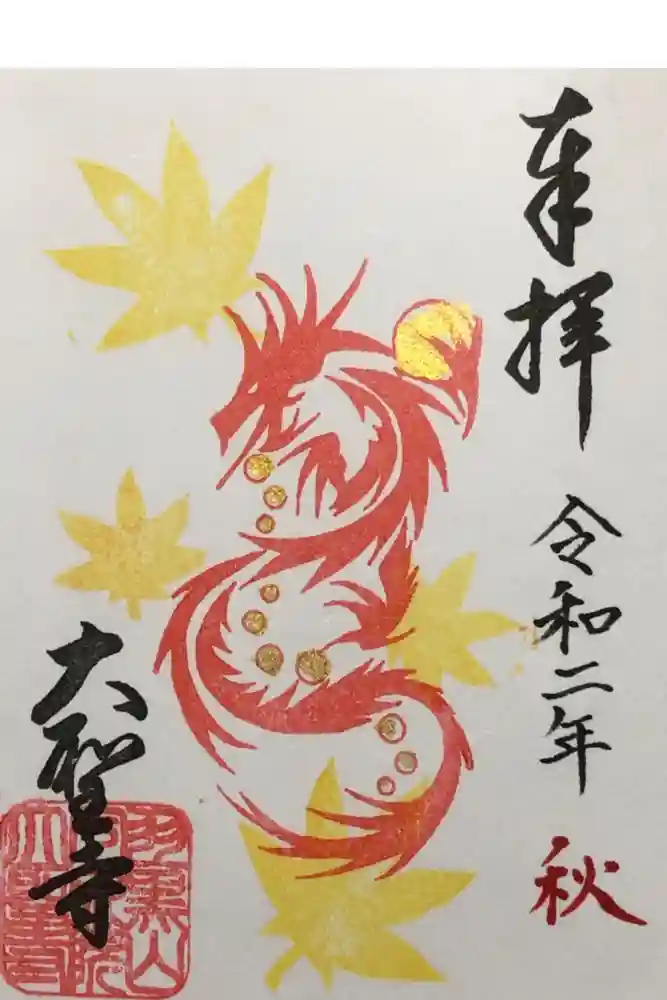 奉拝
令和二年 秋
大聖寺